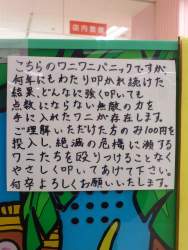 店内連絡
こちらのワニワニパニックですが
何年にもわたり叩かれ続けた
結果、どんなに強く叩いても
点数にならない無敵の力を
手に入れたワニが存在します。
ご理解いただけた方のみ100円を
投入し、絶滅の危機に瀕する
ワニたちを殴りつけることなく
やさしく叩いてあげて下さい。
何卒よろしくお願いいたします。